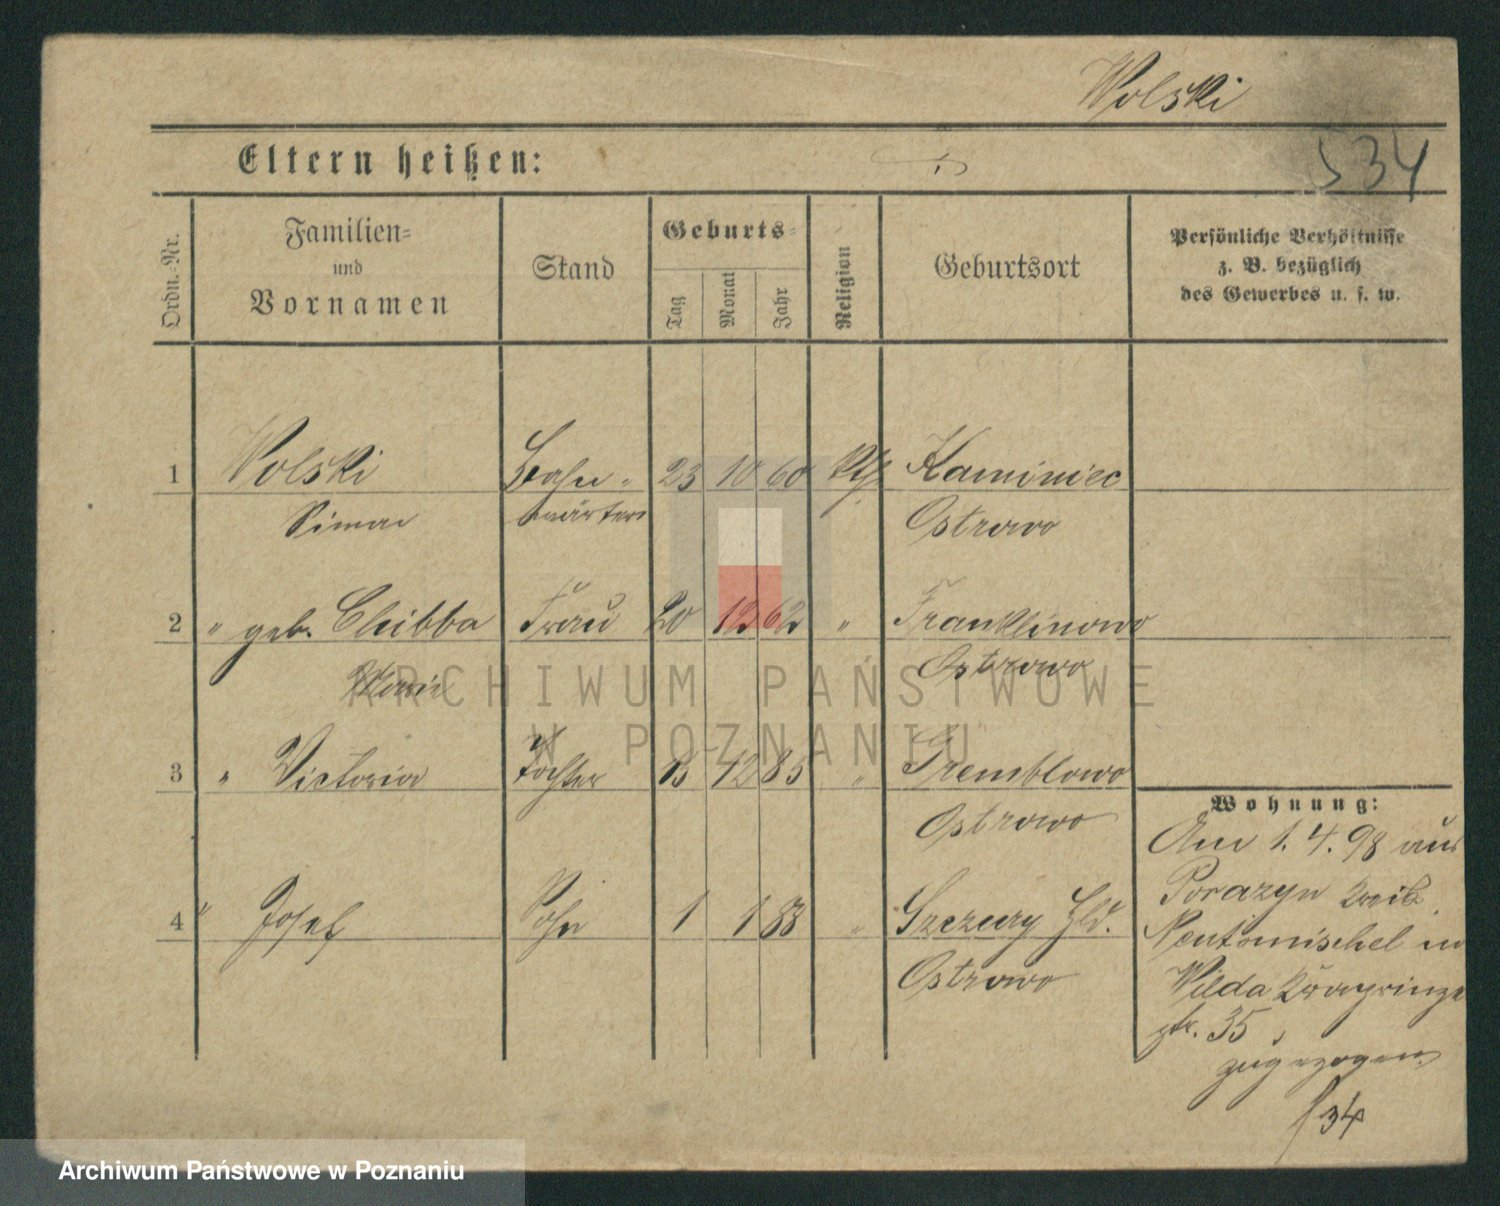 Wolski
Eltern heißen:
534
Ordn.-Nr.
Familien-
und
Vornamen
Stand
Geburts-
Tag
Monat
Jahr
Religion
Geburtsort
Persönliche Verhältnisse
z. B. bezüglich
des Gewerbes u. s. w.
1 Wolski Bahn- 23 10 60 kth Kaminiec
Simon wärter Ostrowo
2 " geb. Chibba Frau 20 12 62 " Franklinowo
Maria Ostrowo
3 " Victoria Tochter 15 12 85 " Gremblowo
Ostrowo
4 " Josef Sohn 1 1 88 " Szczury Hld.
Ostrowo
Wohnung:
Am 1. 4. 98 aus
Porazyn Kreis
Neutomischel in
Wilda Kronprinzen
str. 35,
zugezogen.
34
ARCHIWUM PAŃSTWOWE
W POZNANIU
Archiwum Państwowe w Poznaniu